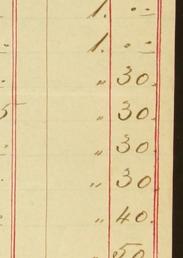 1. --
1. --
" 30.
5 " 30.
" 30.
" 30.
" 40.
50.